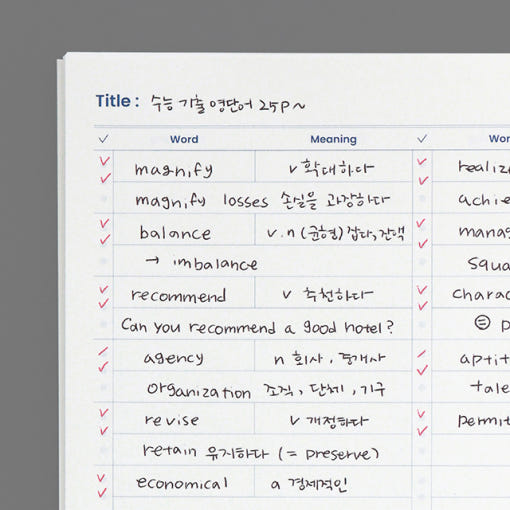 Title : 수능 기출 영단어 25P~
✓ Word Meaning ✓
magnify v 확대하다
magnify losses 손실을 과장하다
balance v.n (균형) 잡다, 잔액
→ imbalance
recommend v 추천하다
Can you recommend a good hotel?
agency n 회사, 중개사
organization 조직, 단체, 기구
revise v 개정하다
retain 유지하다 (= preserve)
economical a 경제적인
Wor
realiz
achie
manag
squa
charac
aptit
tale
permit